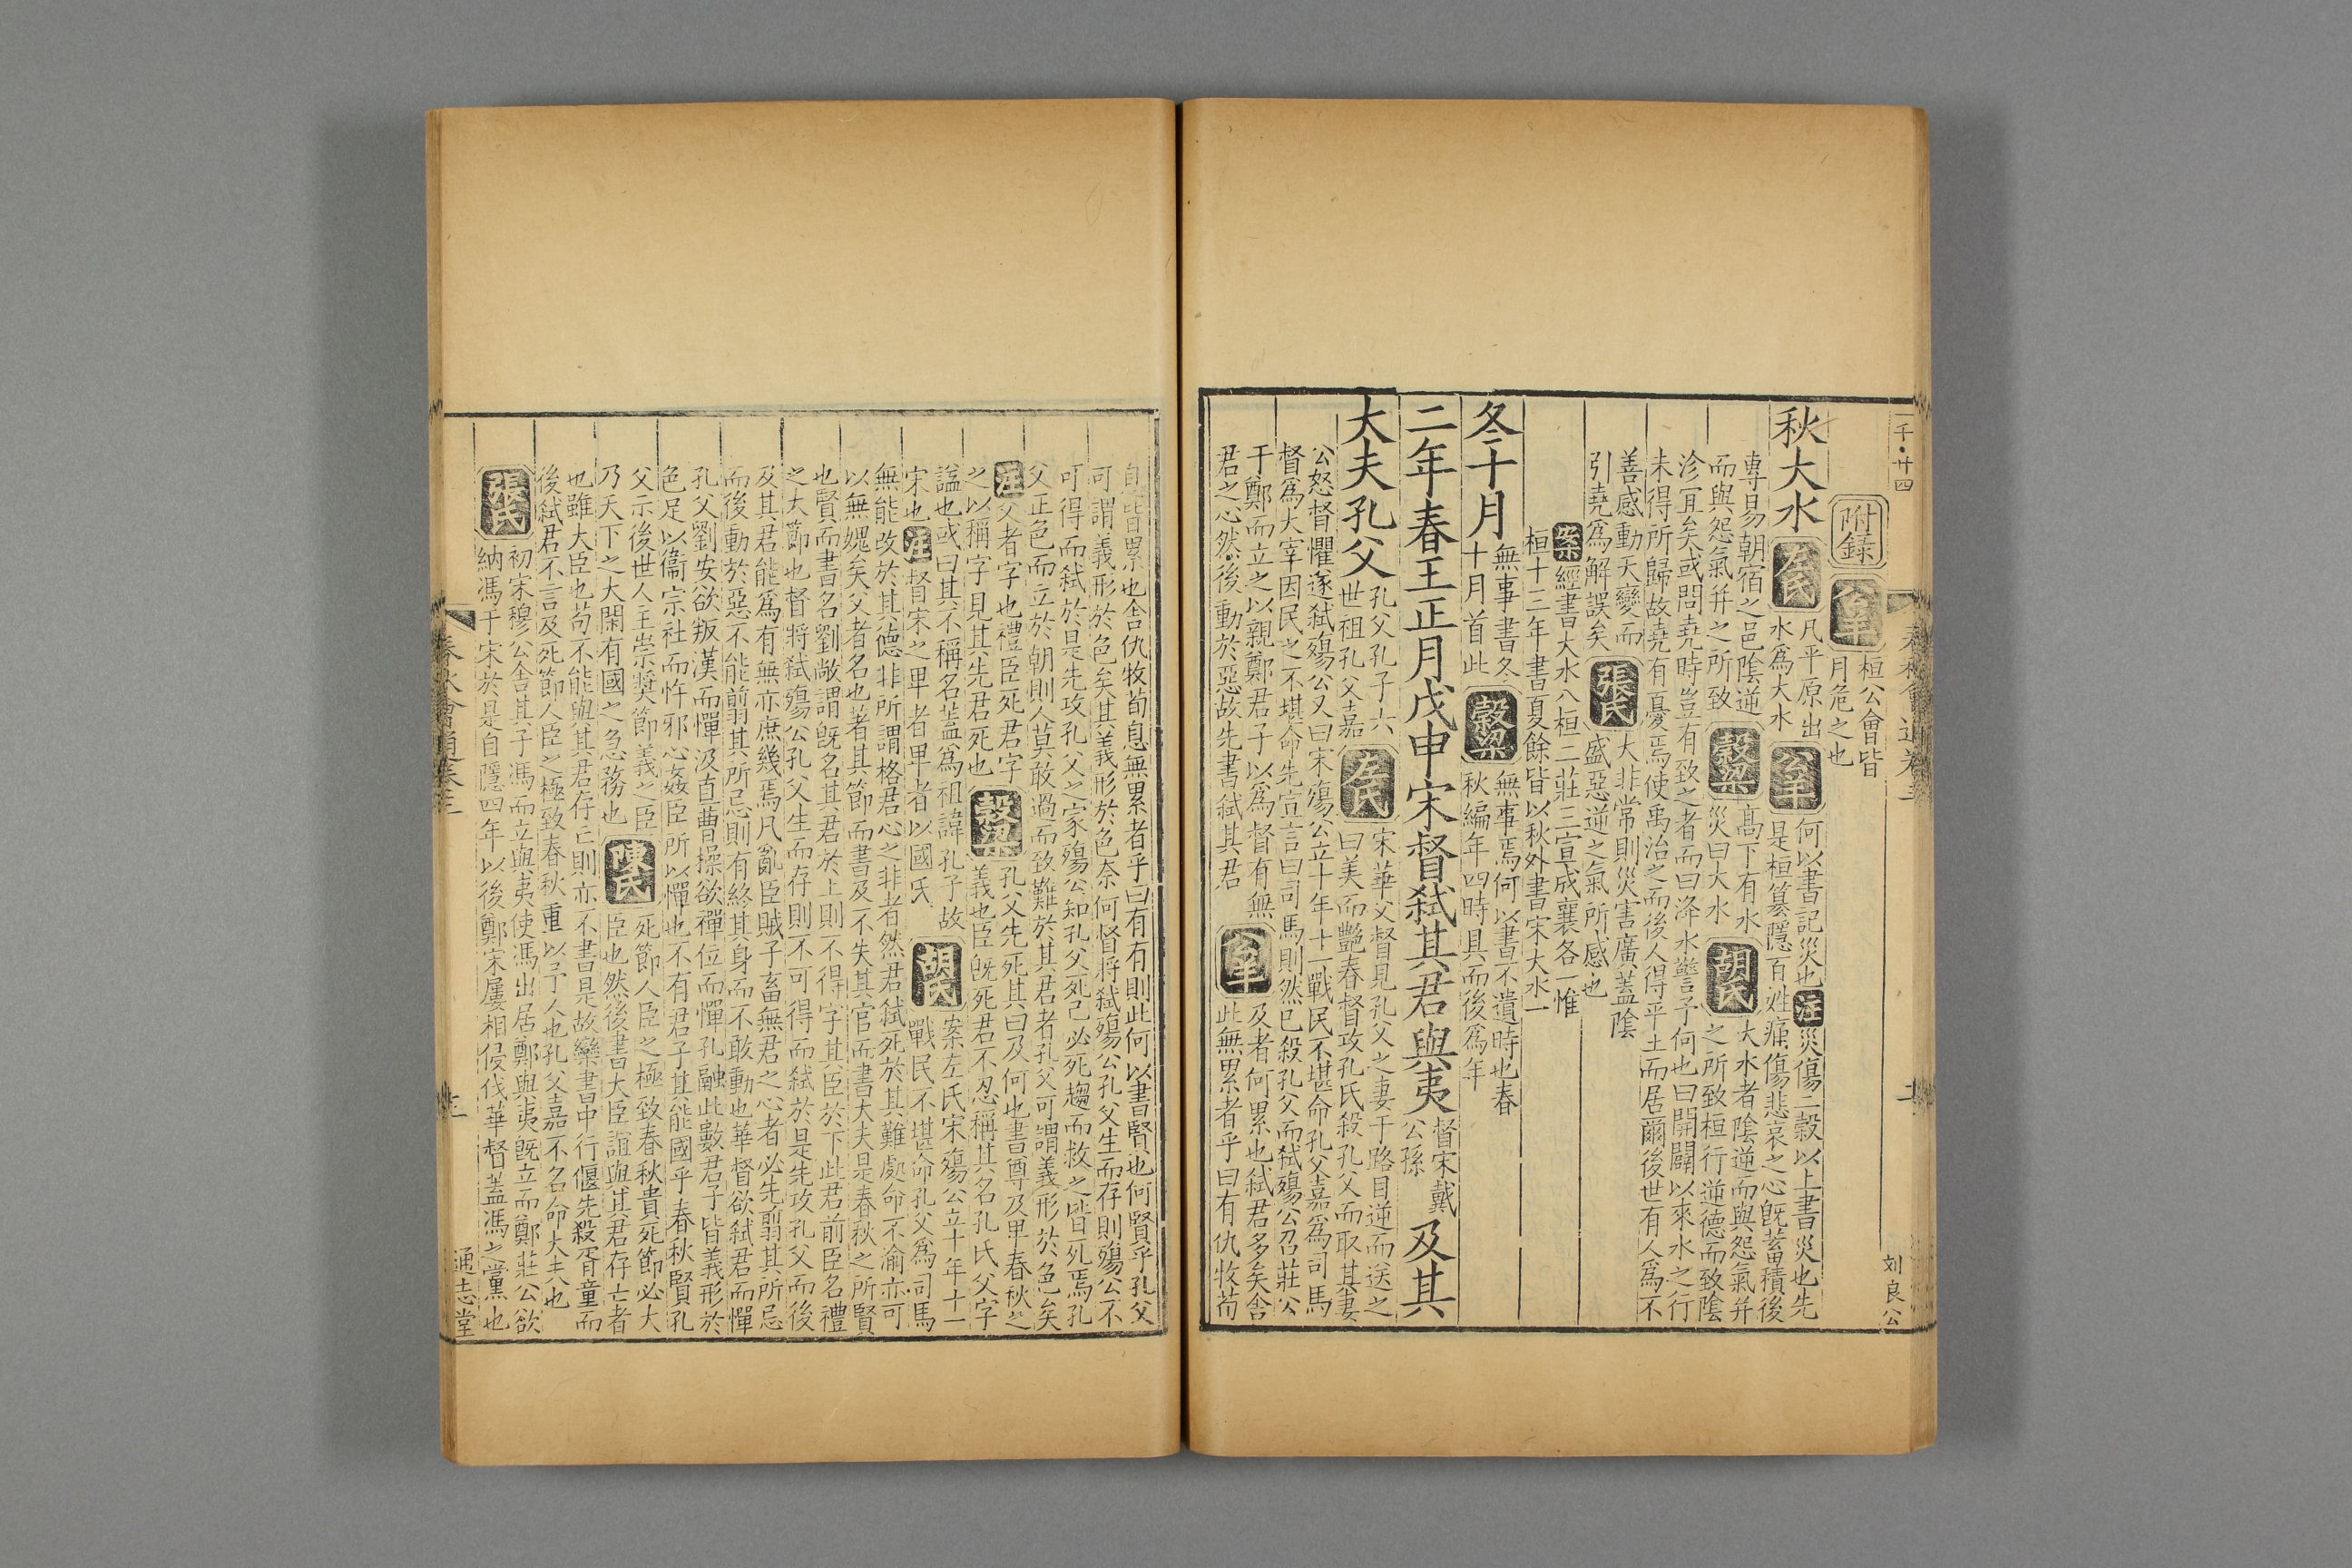 一千·廿四
刘良公
附錄 公羊 桓公會皆
月危之也
秋大水 左氏 凡平原出
水爲大水 公羊 何以書記災也注災傷二穀以上書災也先
是桓篡隱百姓痛傷悲哀之心旣蓄積後
專易朝宿之邑陰逆
而與怨氣并之所致 穀梁 高下有水
災曰大水 胡氏 大水者陰逆而與怨氣并
之所致桓行逆德而致陰
沴宜矣或問堯時豈有致之者而曰洚水警予何也曰開闢以來水之行
未得所歸故堯有憂焉使禹治之而後人得平土而居爾後世有人爲不
善感動天變而
引堯爲解誤矣 張氏 大非常則災害廣蓋陰
盛惡逆之氣所感也
案經書大水八桓二莊三宣成襄各一惟
桓十三年書夏餘皆以秋外書宋大水一
冬十月 無事書冬
十月首此 穀梁 無事焉何以書不遺時也春
秋編年四時具而後爲年
二年春王正月戊申宋督弒其君與夷 督宋戴
公孫 及其
大夫孔父 孔父孔子六
世祖孔父嘉 左氏 宋華父督見孔父之妻于路目逆而送之
曰美而艷春督攻孔氏殺孔父而取其妻
公怒督懼遂弒殤公又曰宋殤公立十年十一戰民不堪命孔父嘉爲司馬
督爲大宰因民之不堪命先宣言曰司馬則然已殺孔父而弒殤公召莊公
于鄭而立之以親鄭君子以爲督有無
君之心然後動於惡故先書弒其君 公羊 及者何累也弒君多矣舍
此無累者乎曰有仇牧荀
息皆累也舍仇牧荀息無累者乎曰有有則此何以書賢也何賢乎孔父
可謂義形於色矣其義形於色奈何督將弒殤公孔父生而存則殤公不
可得而弒於是先攻孔父之家殤公知孔父死己必死趨而救之皆死焉孔
父正色而立於朝則人莫敢過而致難於其君者孔父可謂義形於色矣
注父者字也禮臣死君字
之以稱字見其先君死也 穀梁 孔父先死其曰及何也書尊及卑春秋之
義也臣旣死君不忍稱其名孔氏父字
諡也或曰其不稱名蓋爲祖諱孔子故
宋也 注 督宋之卑者卑者以國氏 胡氏 案左氏宋殤公立十年十一
戰民不堪命孔父爲司馬
無能改於其德非所謂格君心之非者然君弒死於其難處命不渝亦可
以無媿矣父者名也著其節而書及不失其官而書大夫是春秋之所賢
也賢而書名劉敞謂旣名其君於上則不得字其臣於下此君前臣名禮
之大節也督將弒殤公孔父生而存則不可得而弒於是先攻孔父而後
及其君能爲有無亦庶幾焉凡亂臣賊子畜無君之心者必先翦其所忌
而後動於惡不能翦其所忌則有終其身而不敢動也華督欲弒君而憚
孔父劉安欲叛漢而憚汲直曹操欲禪位而憚孔融此數君子皆義形於
色足以衞宗社而忤邪心姦臣所以憚也不有君子其能國乎春秋賢孔
父示後世人主崇奬節義之臣
乃天下之大閑有國之急務也 陳氏 死節人臣之極致春秋貴死節必大
臣也然後書大臣誼與其君存亡者
也雖大臣也苟不能與其君存亡則亦不書是故欒書中行偃先殺胥童而
後弒君不言及死節人臣之極致春秋重以予人也孔父嘉不名命大夫也
張氏 初宋穆公舍其子馮而立與夷使馮出居鄭與夷旣立而鄭莊公欲
納馮于宋於是自隱四年以後鄭宋屢相侵伐華督蓋馮之黨也
通志堂